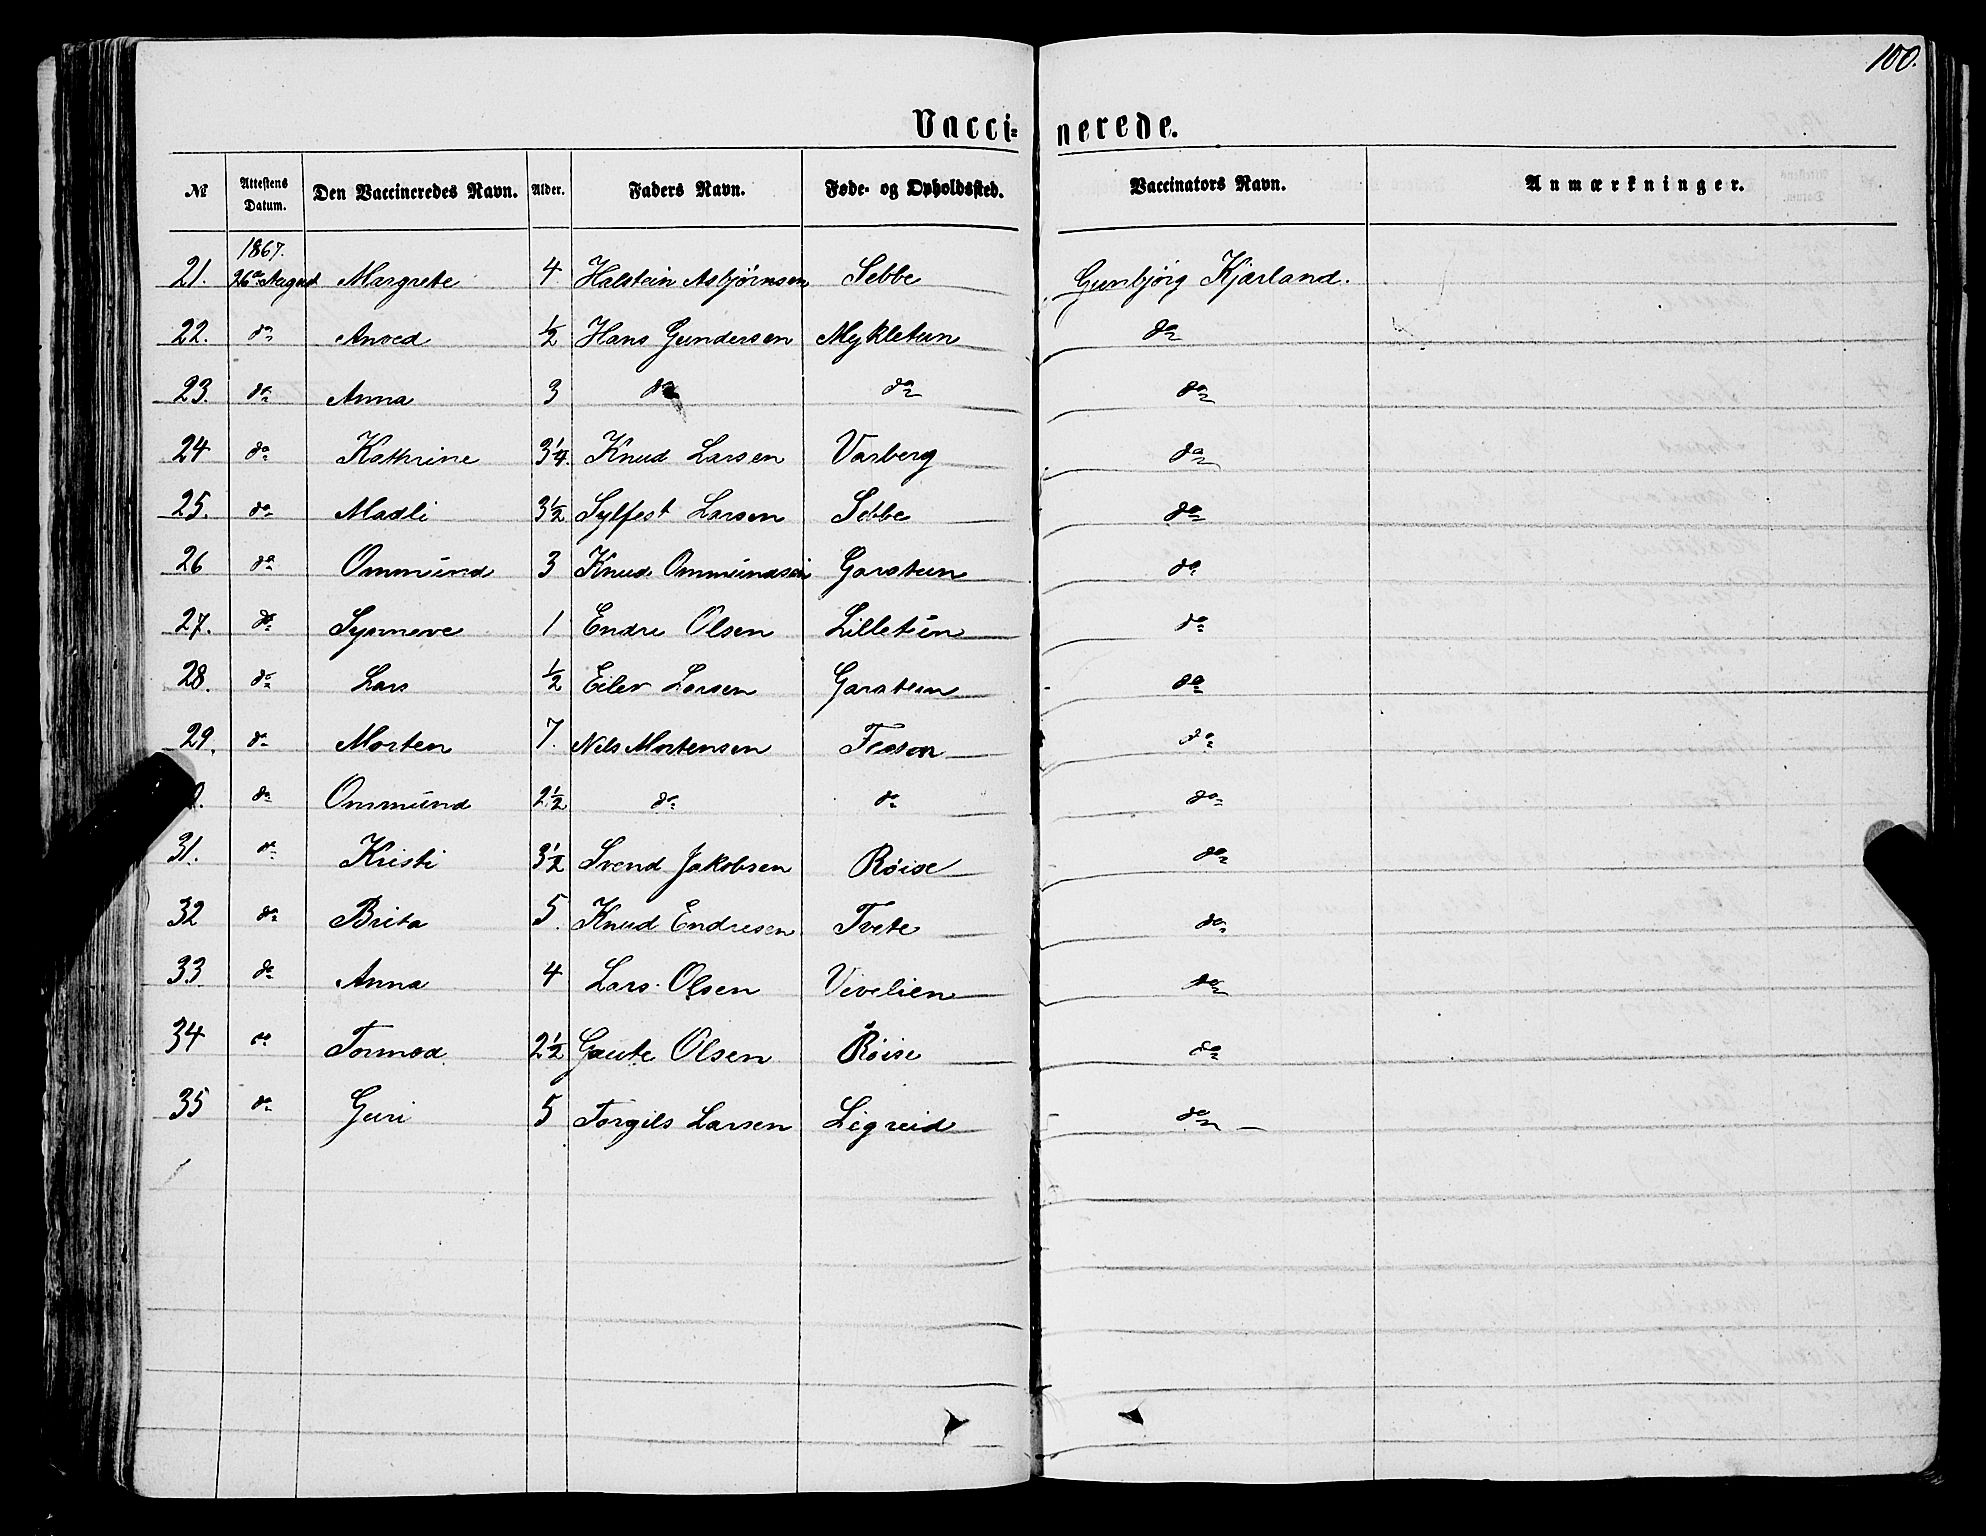 100.
Vacci- nerede.
№ Attestens Datum. Den Vaccineredes Navn. Alder. Faders Navn. Føde- og Opholdssted. Vaccinators Navn. Anmærkninger.
1867.
21. 26de August Margrete 4 Halstein Asbjørnsen Sebbe Gunbjørg Kjærland.
22. do Anved ½ Hans Gundersen Mykletun do
23. do Anna 3 do do do
24 do Kathrine 3¼ Knud Larsen Varberg do
25. do Madli 3½ Sylfest Larsen Sebbe do
26 do Ommund 3 Knud Ommundsen Garatun do
27. do Synneve 1 Endre Olsen Lilletun do
28. do Lars ½ Eilev Larsen Garatun do
29. do Morten 7. Nils Mortensen do
do Ommund 2½ do do do
31. do Kristi 3½ Svend Jakobsen Røise do
32 do Brita 5. Knud Endresen Tveite do
33. do Anna 4 Lars Olsen Vivelien do
34 do Tormod 2½ Gaute Olsen Røise do
35 do Guri 5 Torgils Larsen Ligreid do